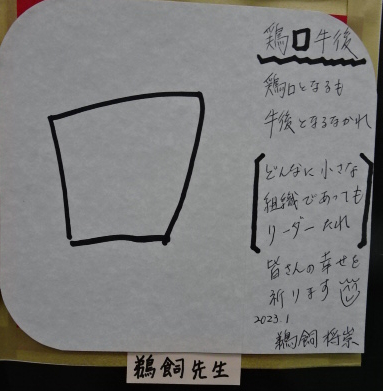 鶏口牛後
鶏口となるも
牛後となるなかれ
どんなに小さな
組織であっても
リーダーたれ
皆さんの幸せを
祈ります
2023.1
鵜飼将崇
鵜飼先生